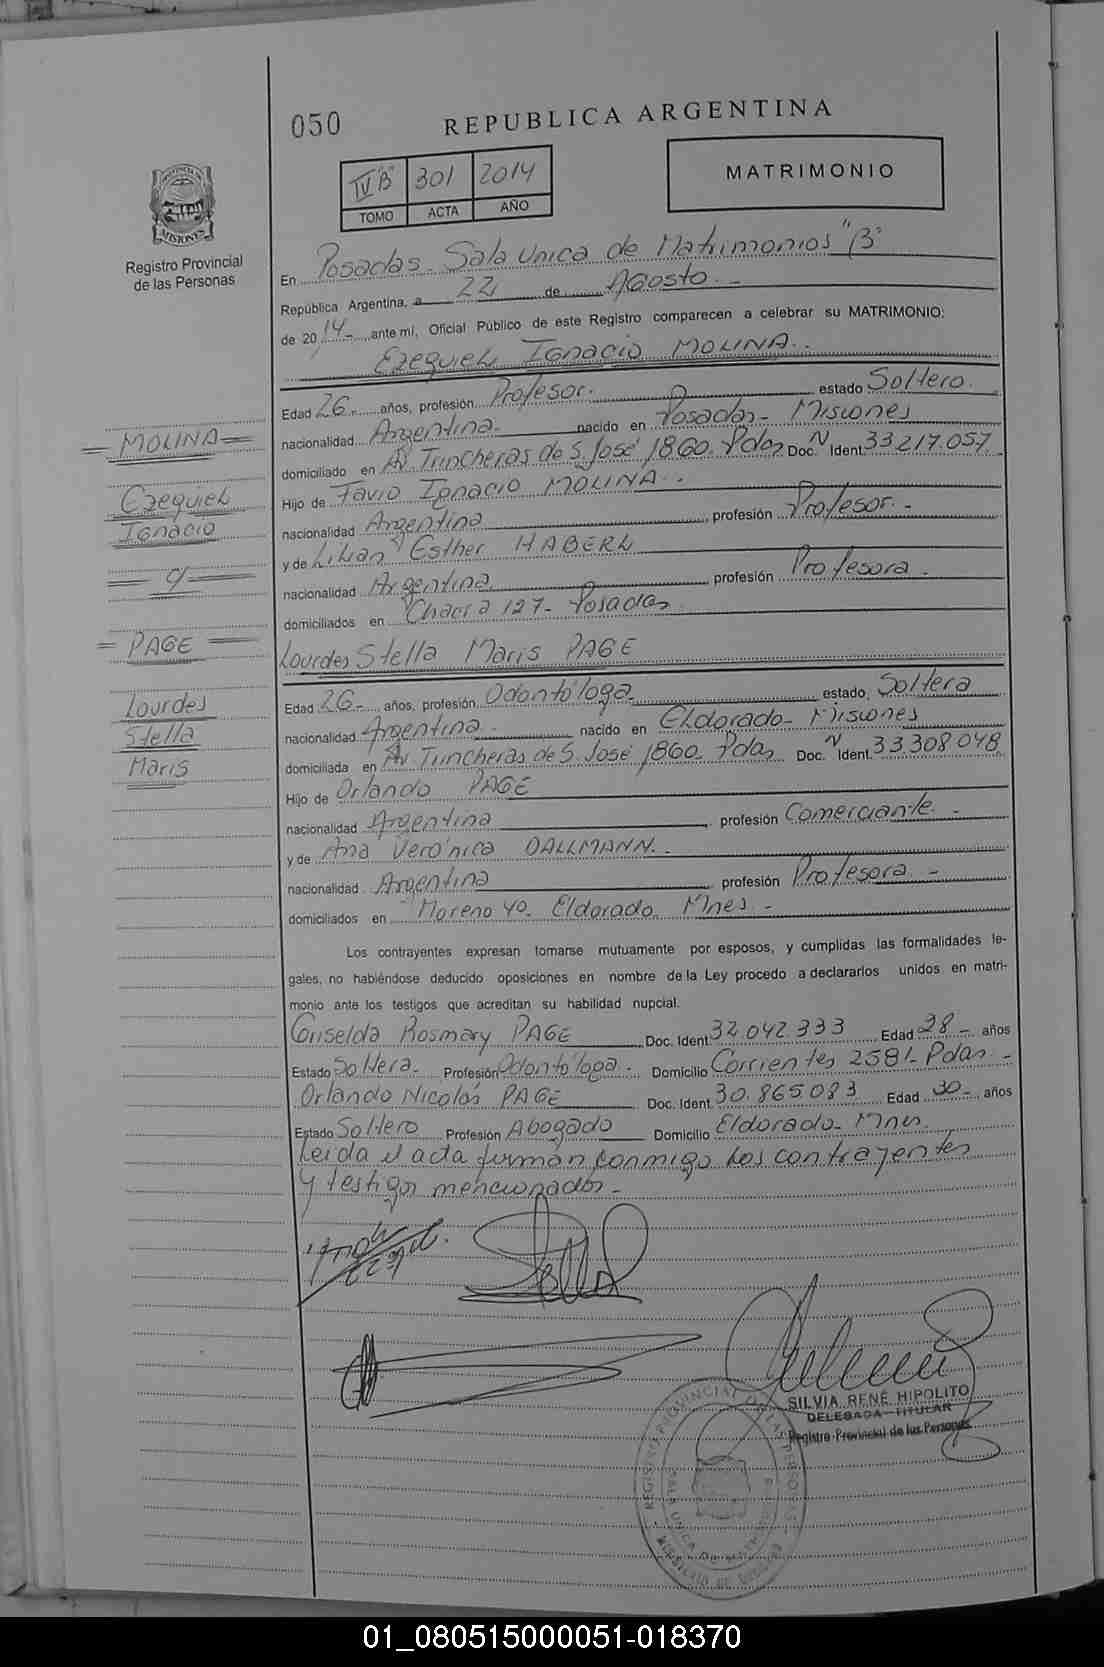 050
REPUBLICA ARGENTINA
IV "B" 301 2014
TOMO ACTA AÑO
MATRIMONIO
PROVINCIA DE
MISIONES
Registro Provincial
de las Personas
En Posadas. Sala Unica de Matrimonios "B"
República Argentina, a 22 de Agosto. -
de 20 14- ante mí, Oficial Público de este Registro comparecen a celebrar su MATRIMONIO:
Ezequiel Ignacio MOLINA.
Edad 26. años, profesión Profesor. estado Soltero.
nacionalidad Argentina. nacido en Posadas- Misiones
domiciliado en Av. Trincheras de S. José 1860. Pdas Doc. N Ident. 33.217.057.
Hijo de Favio Ignacio MOLINA.
nacionalidad Argentina profesión Profesor. -
y de Lilian Esther HABERL
nacionalidad Argentina. profesión Profesora. -
domiciliados en Chacra 127- Posadas
Lourdes Stella Maris PAGE
Edad 26- años, profesión Odontóloga estado, Soltera
nacionalidad Argentina. nacido en Eldorado- Misiones
domiciliada en Av Trincheras de S. José 1860. Pdas Doc. N Ident. 33.308.048
Hijo de Orlando PAGE
nacionalidad Argentina profesión Comerciante. -
y de Ana Verónica DALLMANN.
nacionalidad Argentina profesión Profesora. -
domiciliados en Moreno 40- Eldorado Mnes -
= MOLINA =
Ezequiel
Ignacio
= y =
= PAGE =
Lourdes
Stella
Maris
Los contrayentes expresan tomarse mutuamente por esposos, y cumplidas las formalidades le-
gales, no habiéndose deducido oposiciones en nombre de la Ley procedo a declararlos unidos en matri-
monio ante los testigos que acreditan su habilidad nupcial.
Griselda Rosmary PAGE Doc. Ident. 32.042.333 Edad 28- años
Estado Soltera- Profesión Odontóloga. Domicilio Corrientes 2581- Pdas. -
Orlando Nicolás PAGE Doc. Ident. 30.865.083 Edad 30- años
Estado Soltero Profesión Abogado Domicilio Eldorado- Mnes.
Leida el acta firman conmigo los contrayentes
y testigos mencionados. -
SILVIA RENÉ HIPOLITO
DELEGADA TITULAR
Registro Provincial de las Personas
REGISTRO PROVINCIAL DE LAS PERSONAS
SALA UNICA DE MATRIMONIOS
MINISTERIO DE GOBIERNO
01_080515000051-018370